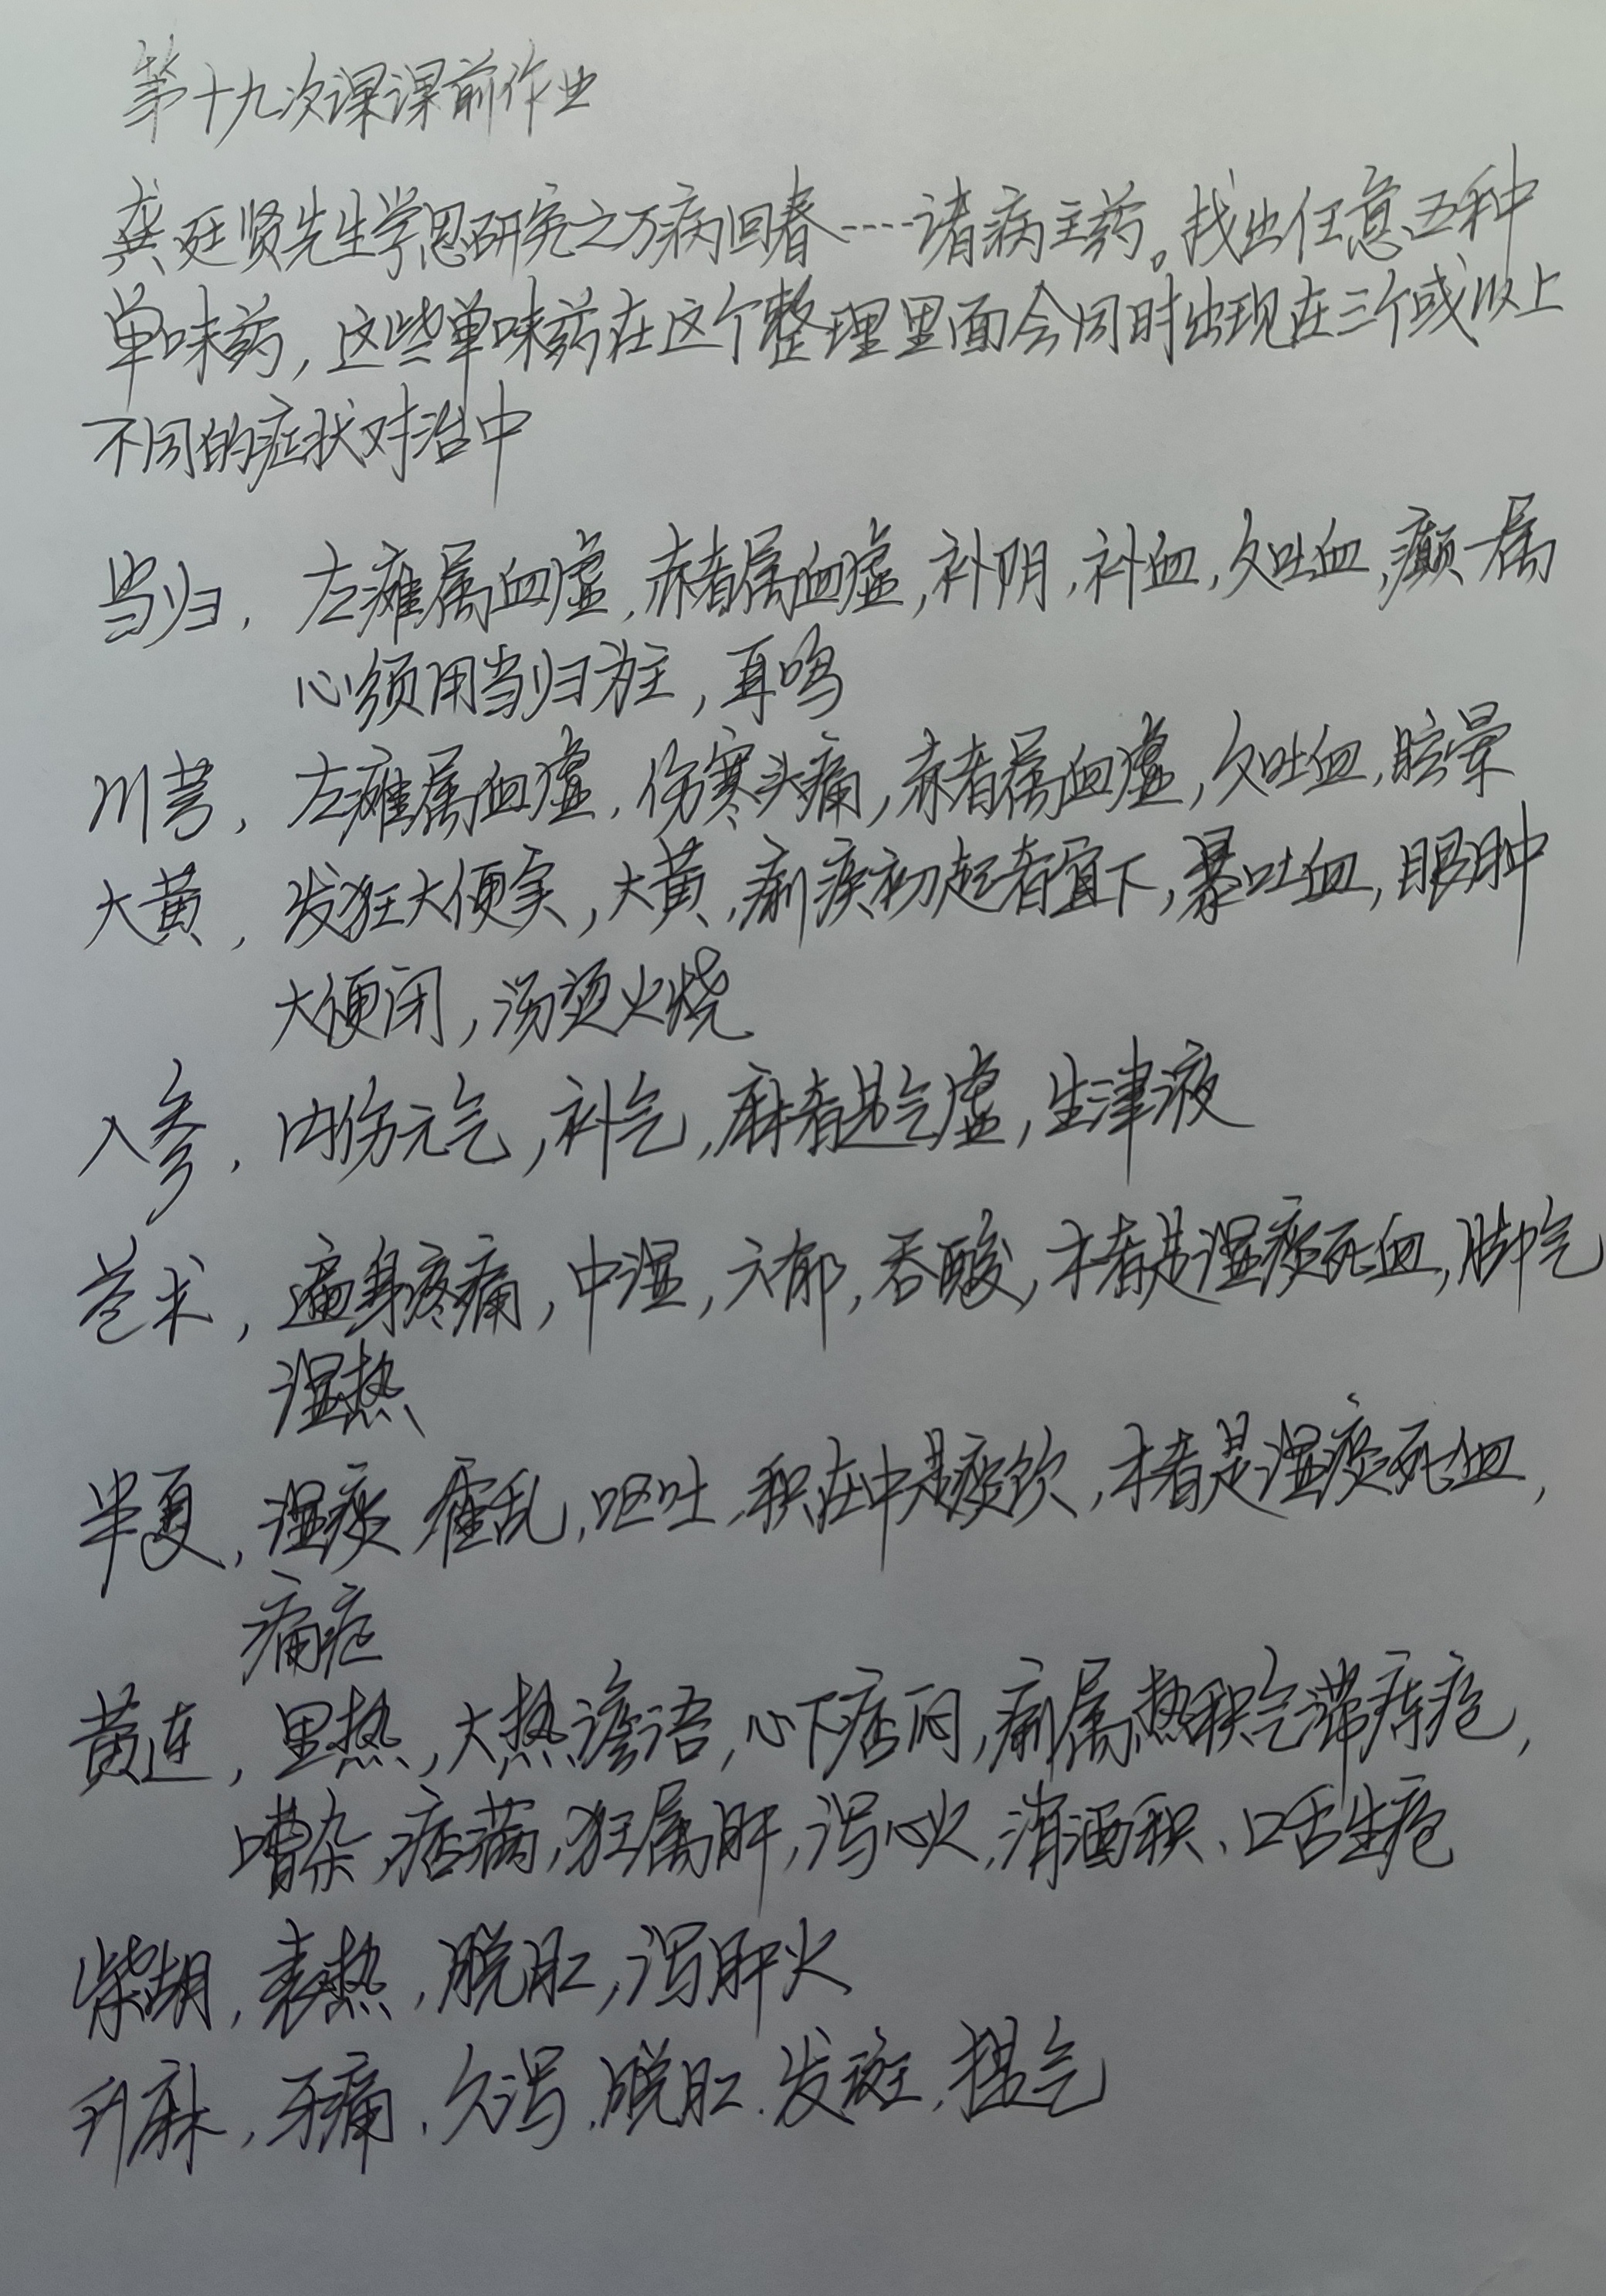 第十九次课课前作业
龚廷贤先生学思研究之万病回春----诸病主药。找出任意五种
单味药,这些单味药在这个整理里面会同时出现在三个或以上
不同的症状对治中
当归, 左瘫属血虚,赤者属血虚,补阴,补血,久吐血,癫属
心须用当归为主,耳鸣
川芎, 左瘫属血虚,伤寒头痛,赤者属血虚,久吐血,眩晕
大黄, 发狂大便实,大黄,痢疾初起者宜下,暴吐血,眼肿
大便闭,汤烫火烧
人参, 内伤元气,补气,麻者是气虚,生津液
苍术, 遍身疼痛,中湿,六郁,吞酸,木者是湿痰死血,脚气
湿热
半夏,湿痰 霍乱,呕吐,积在中是痰饮,木者是湿痰死血,
痛疮
黄连,里热,大热谵语,心下痞闷,痢属热积气滞痔疮,
嘈杂,痞满,狂属肝,泻心火,消酒积、口舌生疮
柴胡,表热,脱肛,泻肝火
升麻,牙痛,久泻,脱肛.发斑,提气